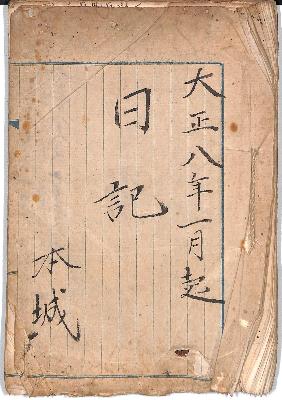 大正八年一月起
日記
本城